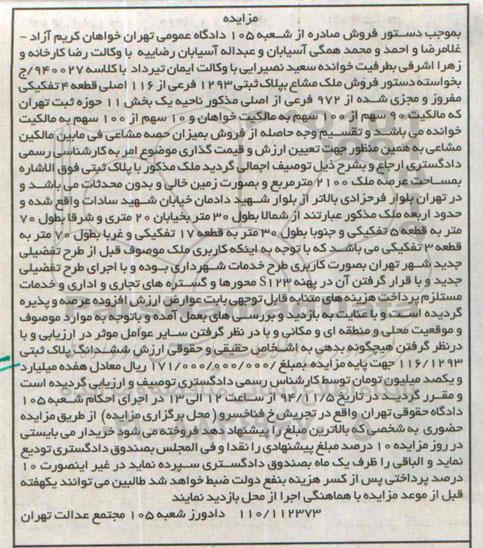 مزایده
بموجب دستور فروش صادره از شعبه ۱۰۵ دادگاه عمومی تهران خواهان کریم آزاد -
غلامرضا و احمد و محمد همگی آسیابان و عبداله آسیابان رضاییه با وکالت رضا کارخانه و
زهرا اشرفی بطرفیت خوانده سعید نصیرایی با وکالت ایمان تیرداد با کلاسه ۹۴۰۰۲۷/ج
بخواسته دستور فروش ملک مشاع بپلاک ثبتی ۱۲۹۳ فرعی از ۱۱۶ اصلی قطعه ۴ تفکیکی
مفروز و مجزی شده از ۹۷۲ فرعی از اصلی مذکور ناحیه یک بخش ۱۱ حوزه ثبت تهران
که مالکیت ۹۰ سهم از ۱۰۰ سهم به مالکیت خواهان و ۱۰ سهم از ۱۰۰ سهم به مالکیت
خوانده می باشد و تقسیم وجه حاصله از فروش بمیزان حصه مشاعی فی مابین مالکین
مشاعی به همین منظور جهت تعیین ارزش و قیمت گذاری موضوع امر به کارشناسی رسمی
دادگستری ارجاع و بشرح ذیل توصیف اجمالی گردید ملک مذکور با پلاک ثبتی فوق الاشاره
بمساحت عرصه ملک ۲۱۰۰ مترمربع و بصورت زمین خالی و بدون محدثات می باشد و
در تهران بلوار فرحزادی بالاتر از بلوار شهید دادمان خیابان شهید سادات واقع شده و
حدود اربعه ملک مذکور عبارتند از شمالا بطول ۳۰ متر بخیابان ۲۰ متری و شرقا بطول ۷۰
متر به قطعه ۵ تفکیکی و جنوبا بطول ۳۰ متر به قطعه ۱۷ تفکیکی و غربا بطول ۷۰ متر به
قطعه ۳ تفکیکی می باشد که با توجه به اینکه کاربری ملک موصوف قبل از طرح تفصیلی
جدید شهر تهران بصورت کاربری طرح خدمات شهرداری بوده و با اجرای طرح تفصیلی
جدید و با قرار گرفتن آن در پهنه S۱۲۳ محورها و گستره های تجاری و اداری و خدمات
مستلزم پرداخت هزینه های متنابه قابل توجهی بابت عوارض ارزش افزوده عرصه و پذیره
گردیده است و با عنایت به بازدید و بررسی های بعمل آمده و باتوجه به موارد موصوف
و موقعیت محلی و منطقه ای و مکانی و با در نظر گرفتن سایر عوامل موثر در ارزیابی و با
درنظر گرفتن هیچگونه بدهی به اشخاص حقیقی و حقوقی ارزش ششدانگ پلاک ثبتی
۱۱۶/۱۲۹۳ جهت پایه مزایده بمبلغ ۱۷۱/۰۰۰/۰۰۰/۰۰۰ ریال معادل هفده میلیارد
و یکصد میلیون تومان توسط کارشناس رسمی دادگستری توصیف و ارزیابی گردیده است
و مقرر گردید در تاریخ ۹۴/۱۱/۵ از ساعت ۱۲ الی ۱۳ در اجرای احکام شعبه ۱۰۵
دادگاه حقوقی تهران واقع در تجریش خ فناخسرو (محل برگزاری مزایده) از طریق مزایده
حضوری به شخصی که بالاترین مبلغ را پیشنهاد دهد فروخته می شود خریدار می بایستی
در روز مزایده ۱۰ درصد مبلغ پیشنهادی را نقدا و فی المجلس بصندوق دادگستری تودیع
نماید و الباقی را ظرف یک ماه بصندوق دادگستری سپرده نماید در غیر اینصورت ۱۰
درصد پرداختی پس از کسر هزینه بنفع دولت ضبط خواهد شد طالبین می توانند یکهفته
قبل از موعد مزایده با هماهنگی اجرا از محل بازدید نمایند
۱۱۰/۱۱۲۳۷۳ دادورز شعبه ۱۰۵ مجتمع عدالت تهران